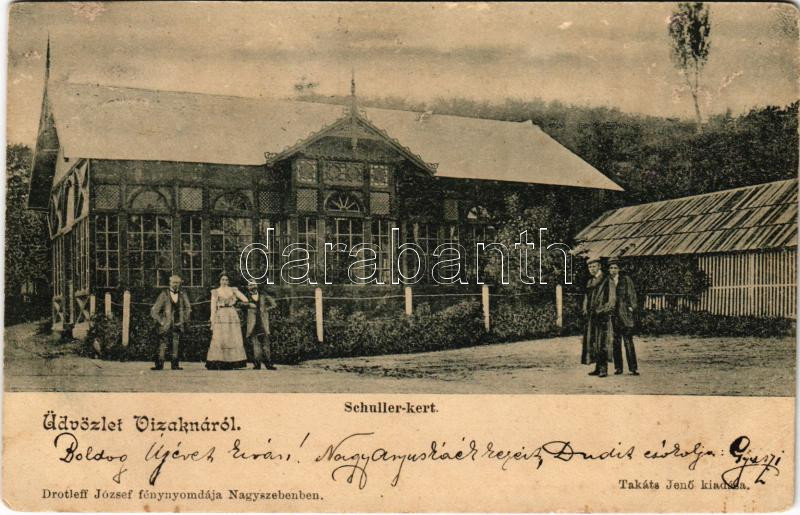 darabanth
Schuller-kert.
Üdvözlet Vizaknáról.
Boldog Újévet kíván! Nagyanyuskáék kezeit, Dudit csókolja: Gyuszi
Drotleff József fénynyomdája Nagyszebenben.
Takáts Jenő kiadása.